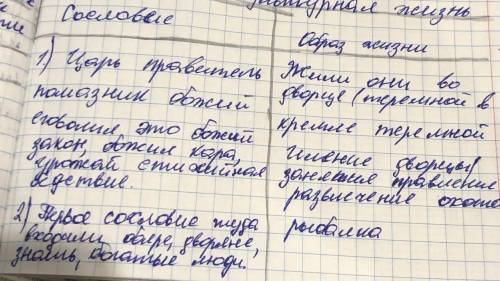 турная жизнь
Сословие
Образ жизни
1) Царь правитель
помазник божий
его воля это божий
закон, божия кара,
урожай стихийная
бедствие.
2) Первое сословие туда
входили бояре, дворяне,
знать, богатые люди.
Жили они во
дворце (теремной в
кремле теремной
Имение дворцы)
занятия правление
развлечение охота
рыбалка